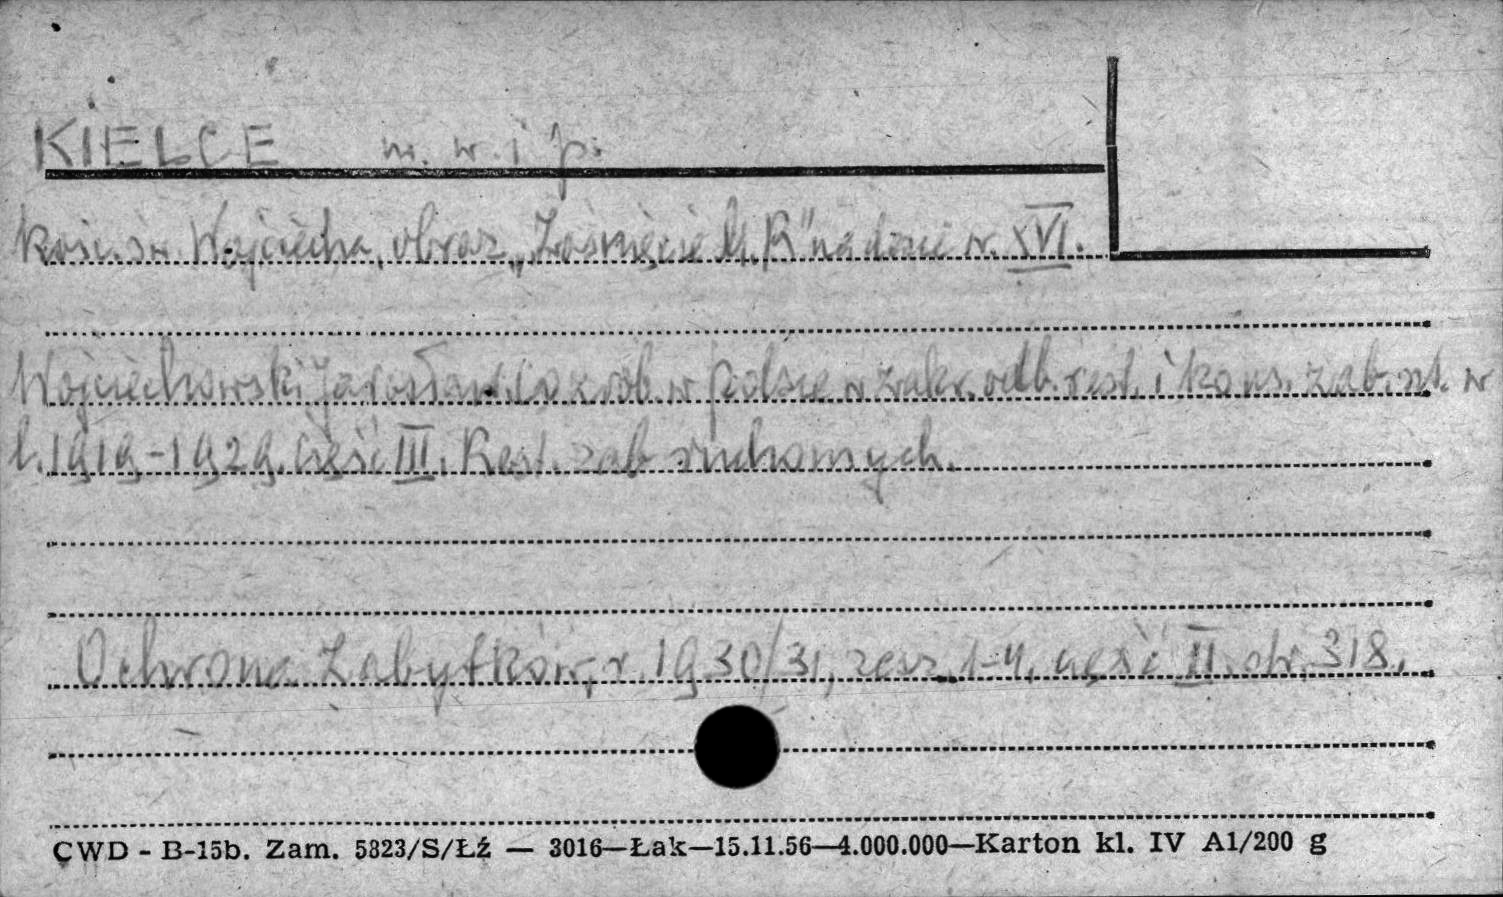 KIELCE m. w. i p.
kość. św. Wojciecha, obraz „Zaśnięcie M. B" na desce w. XVI.
Wojciechowski Jarosław. Co zrob. w Polsce w zakr. odb. rest. i kons. zab. szt. w
l. 1919-1929. Część III. Rest. zab ruchomych.
Ochrona Zabytków, r. 1930/31, zesz. 1-4, część II. str. 318.
CWD - B-15b. Zam. 5823/S/Łź — 3016—Łak—15.11.56—4.000.000—Karton kl. IV A1/200 g